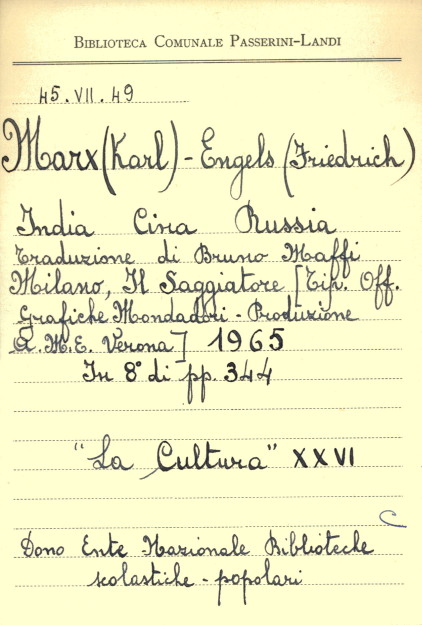 BIBLIOTECA COMUNALE PASSERINI-LANDI
45.VII.49
Marx (Karl) - Engels (Friedrich)
India Cina Russia
Traduzione di Bruno Maffi
Milano, Il Saggiatore [Tip. Off.
Grafiche Mondadori - Produzione
A.M.E. Verona] 1965
In 8° di pp. 344
"La Cultura" XXVI
C
Dono Ente Nazionale Biblioteche
scolastiche - popolari